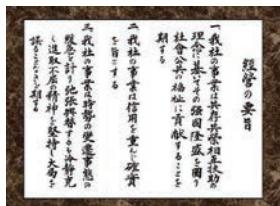 経営の要旨
一、我社の事業は共存共栄相互扶助の
理念に基きその強固隆盛を圖り
社會公共の福祉に貢献することを
期する
二、我社の事業は信用を重んじ確實
を旨とする
三、我社の事業は時勢の変遷事態の
緩急を計り弛張興替するも冷静克
く進取不屈の精神を堅持し大局を
誤らざることを期する